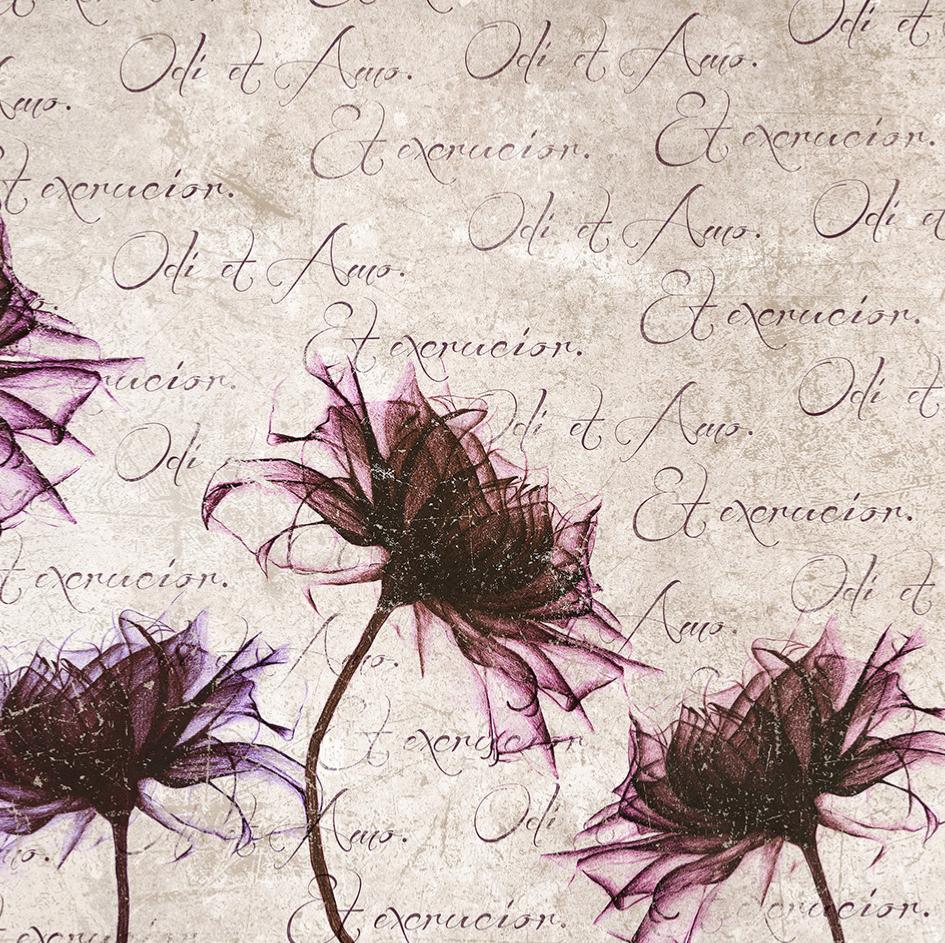 Odi et
Odi et Amo. Odi et Amo.
Amo.
Et excrucior. Et excrucior.
Et excrucior.
Odi et Amo. Odi et
Odi et Amo.
Et excrucior.
Et excrucior.
excrucior. Odi et
Odi et Amo.
Odi
Et excrucior.
Et excrucior. Odi et
Amo.
Amo.
Et excrucior
Amo. Odi
Et excrucior. excrucior.
excrucior